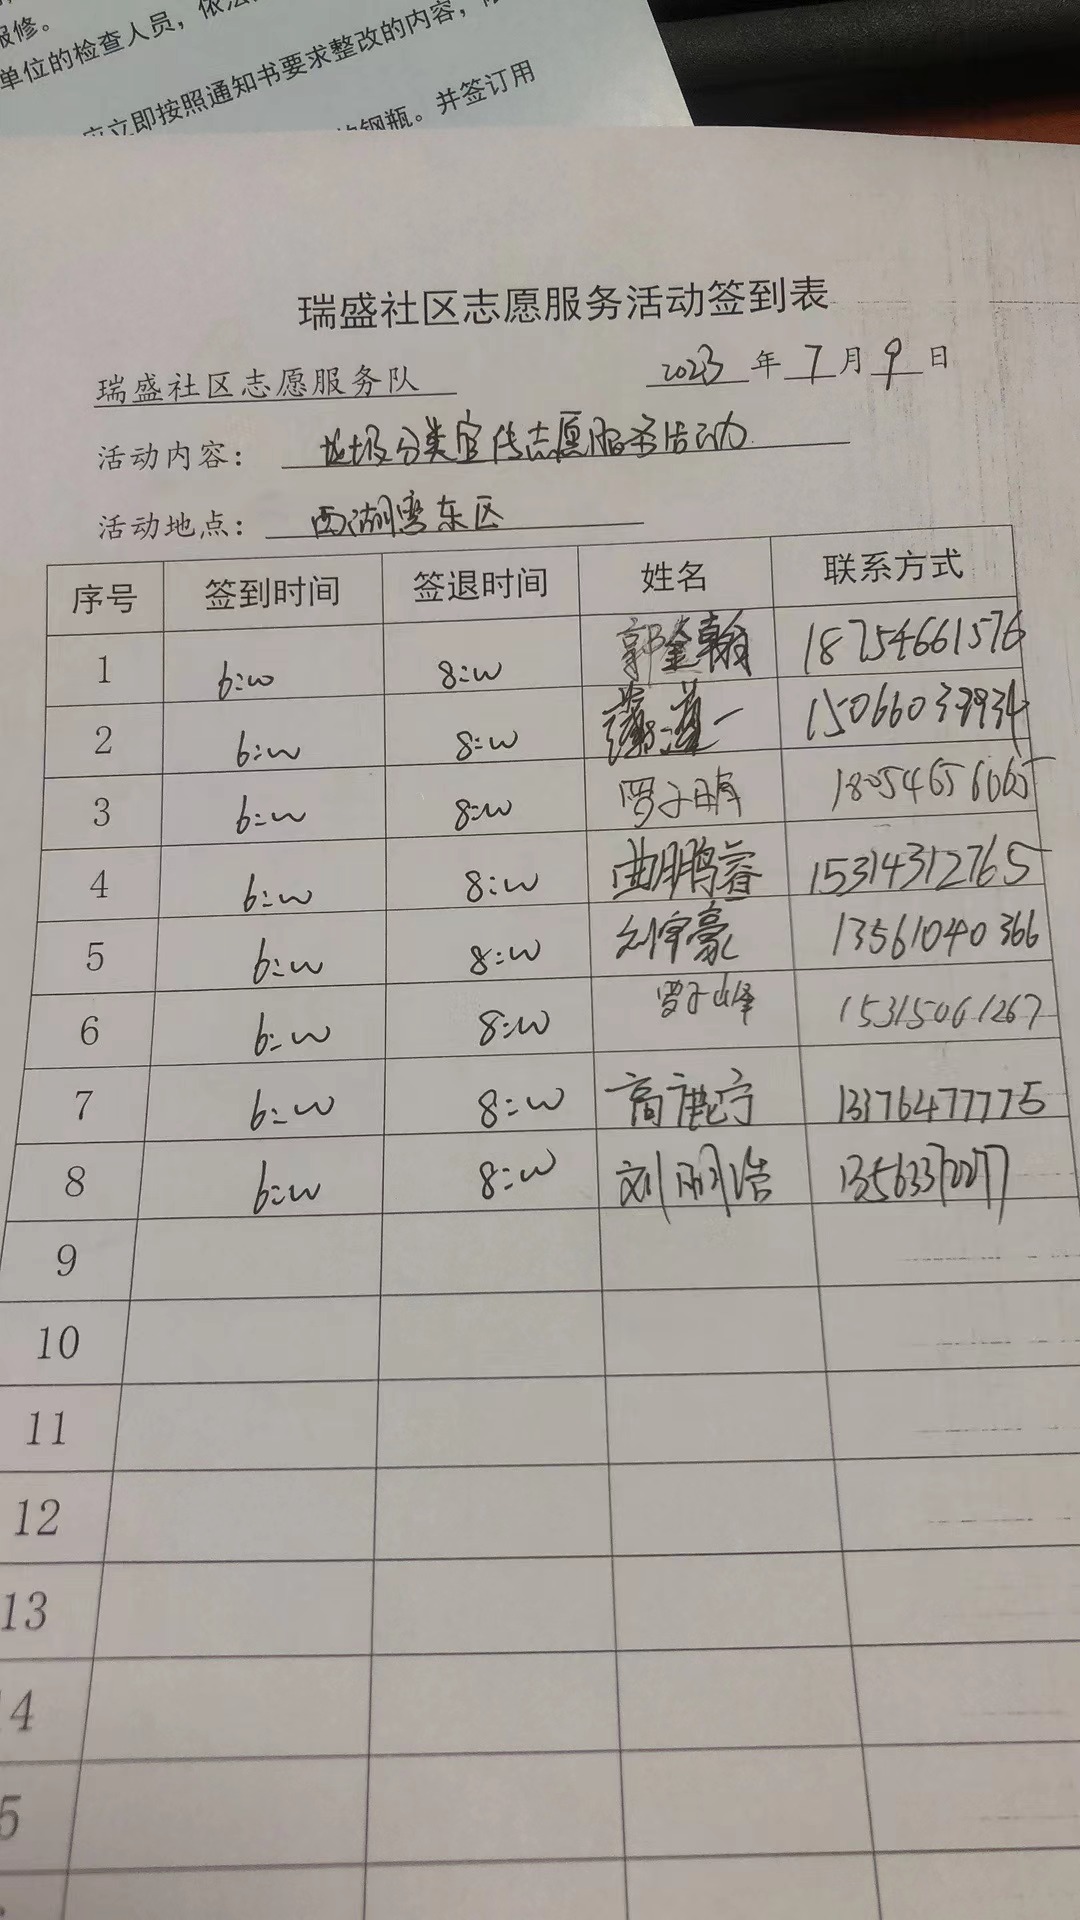 报修。
单位的检查人员，依法
应立即按照通知书要求整改的内容，限
的钢瓶。并签订用
瑞盛社区志愿服务活动签到表
瑞盛社区志愿服务队 2023 年 7 月 9 日
活动内容： 垃圾分类宣传志愿服务活动
活动地点： 西湖湾东区
序号 签到时间 签退时间 姓名 联系方式
1 6:00 8:00 郭奎翰 18754661576
2 6:00 8:00 一 15066039934
3 6:00 8:00 罗子明 18054656065
4 6:00 8:00 曲鹏睿 15314312765
5 6:00 8:00 刘宇豪 13561040366
6 6:00 8:00 罗子峰 15315061267
7 6:00 8:00 高鹿宁 13176477775
8 6:00 8:00 刘明浩
9
10
11
12
13
14
5